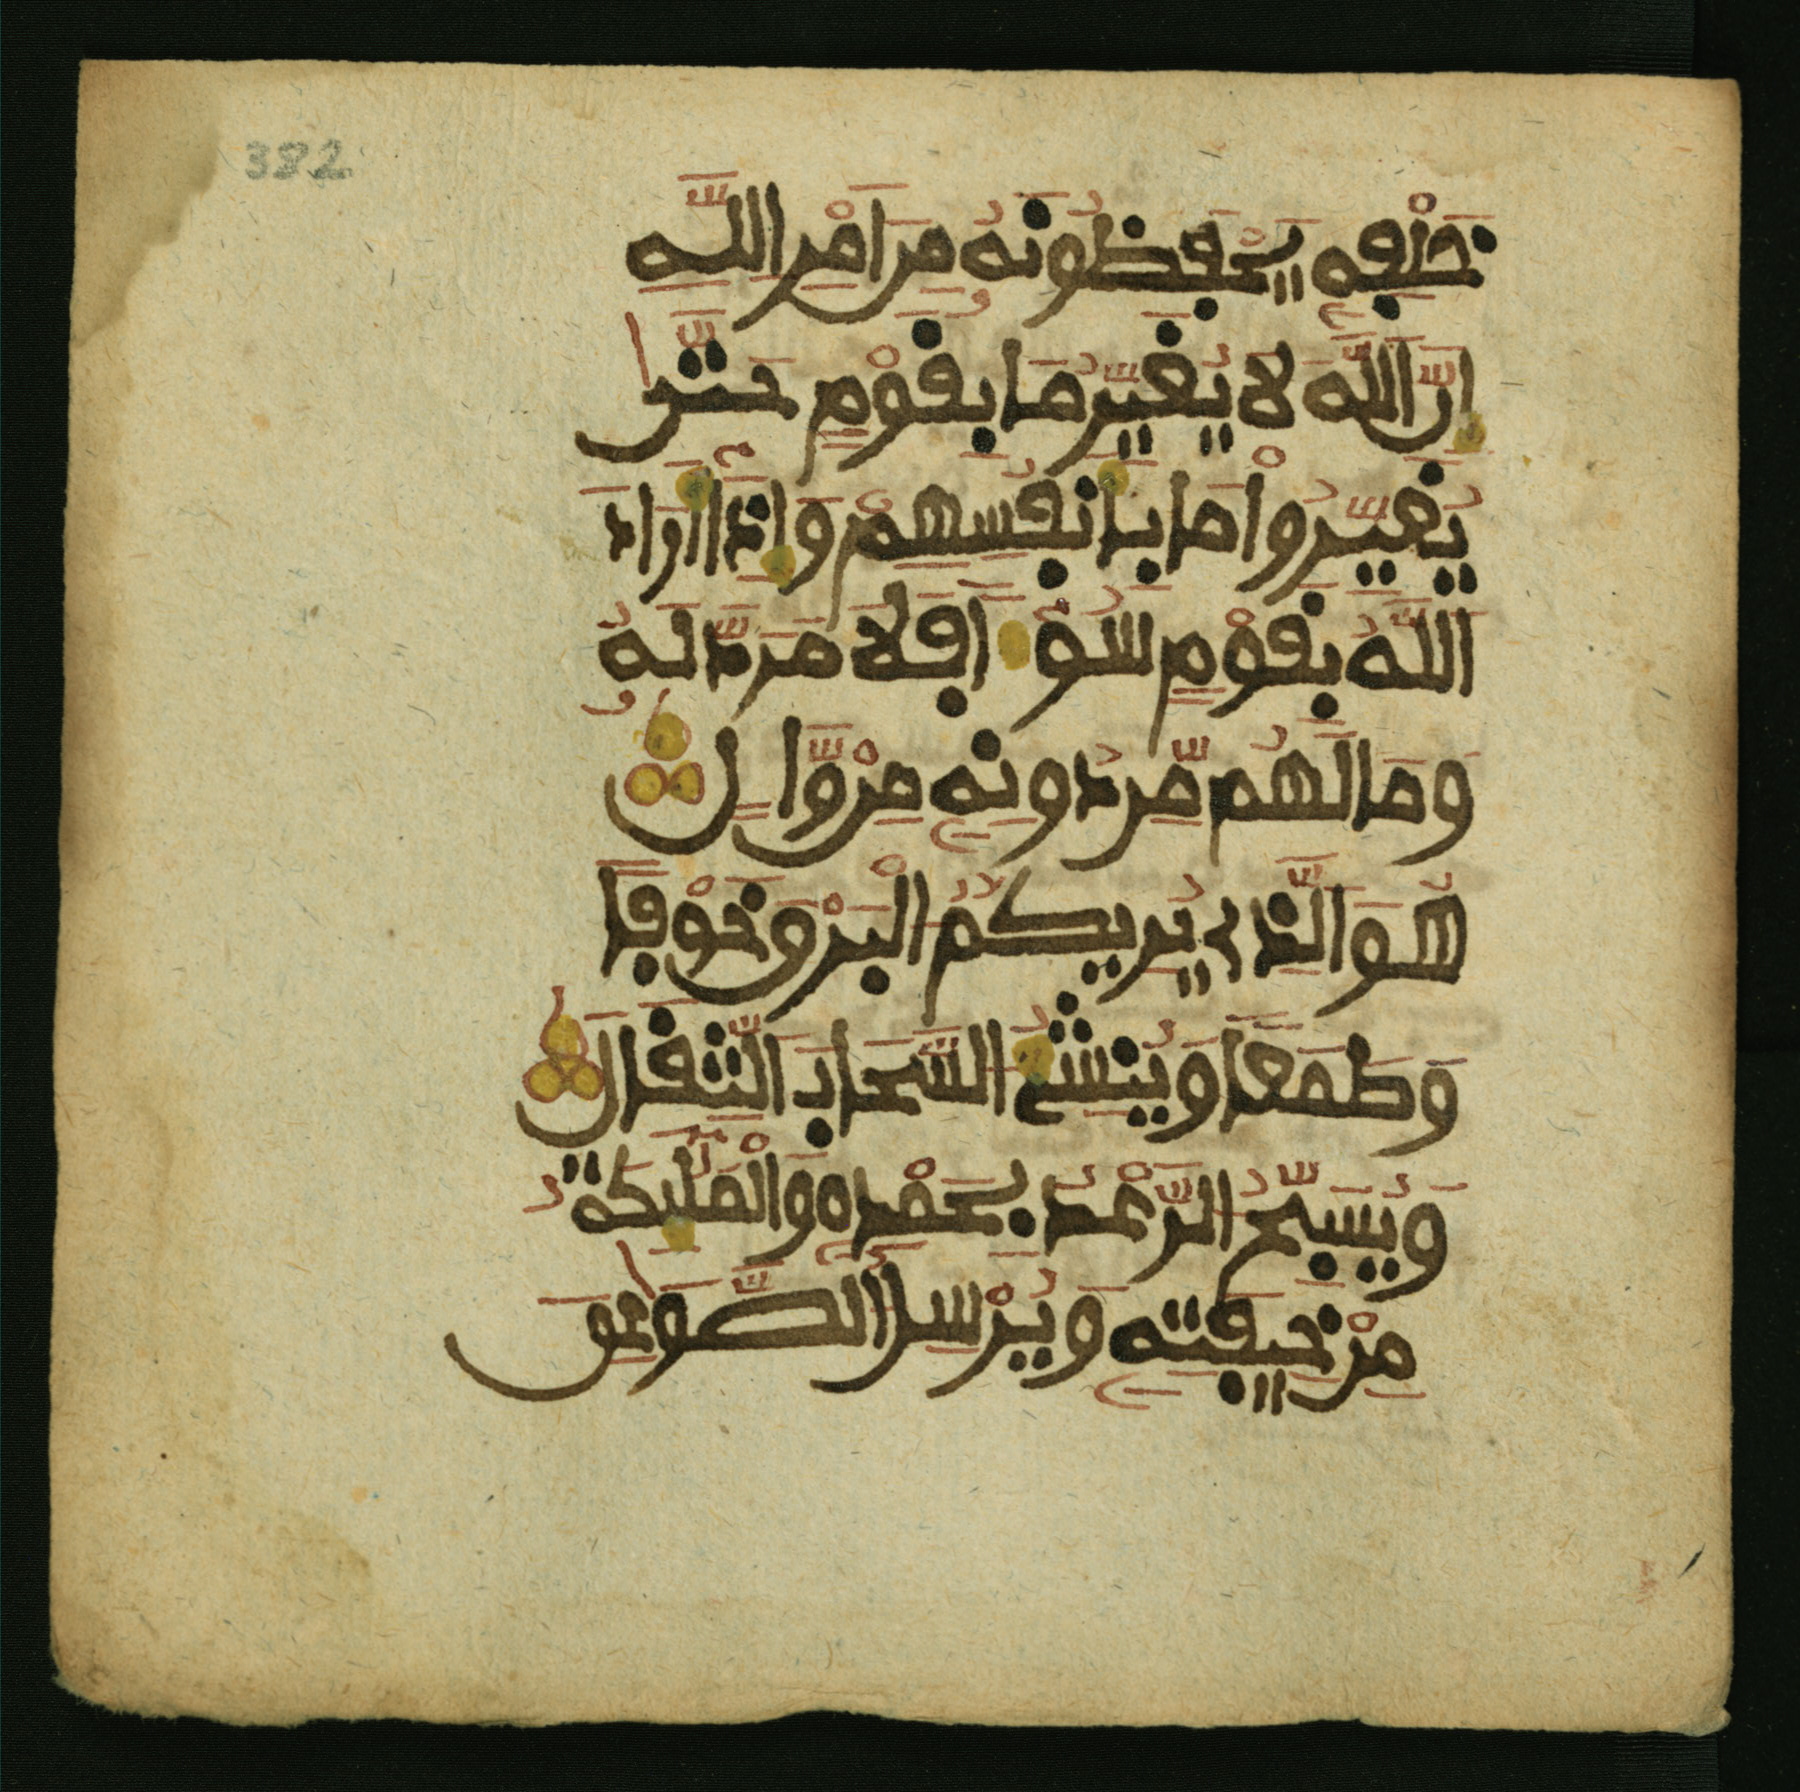 382
خَلْفِهِ يَحْفَظُونَهُ مِنَ امْرِ اللَّهِ
إِنَّ اللَّهَ لَا يُغَيِّرُ مَا بِقَوْمٍ حَتَّىٰ
يُغَيِّرُواْ مَا بِأَنفُسِهِمْ وَإِذَآ أَرَادَ
اللَّهُ بِقَوْمٍ سُوٓءاً فَلَا مَرَدَّ لَهُ
وَمَا لَهُم مِّن دُونِهِ مِنْ وَّالٍ
هُوَ الَّذِي يُرِيكُمُ الْبَرْقَ خَوْفاً
وَطَمَعاً وَيُنشِئُ السَّحَابَ الثِّقَالَ
وَيُسَبِّحُ الرَّعْدُ بِحَمْدِهِ وَالْمَلَٰٓئِكَةُ
مِنْ خِيفَتِهِ وَيُرْسِلُ الصَّوَٰعِقَ